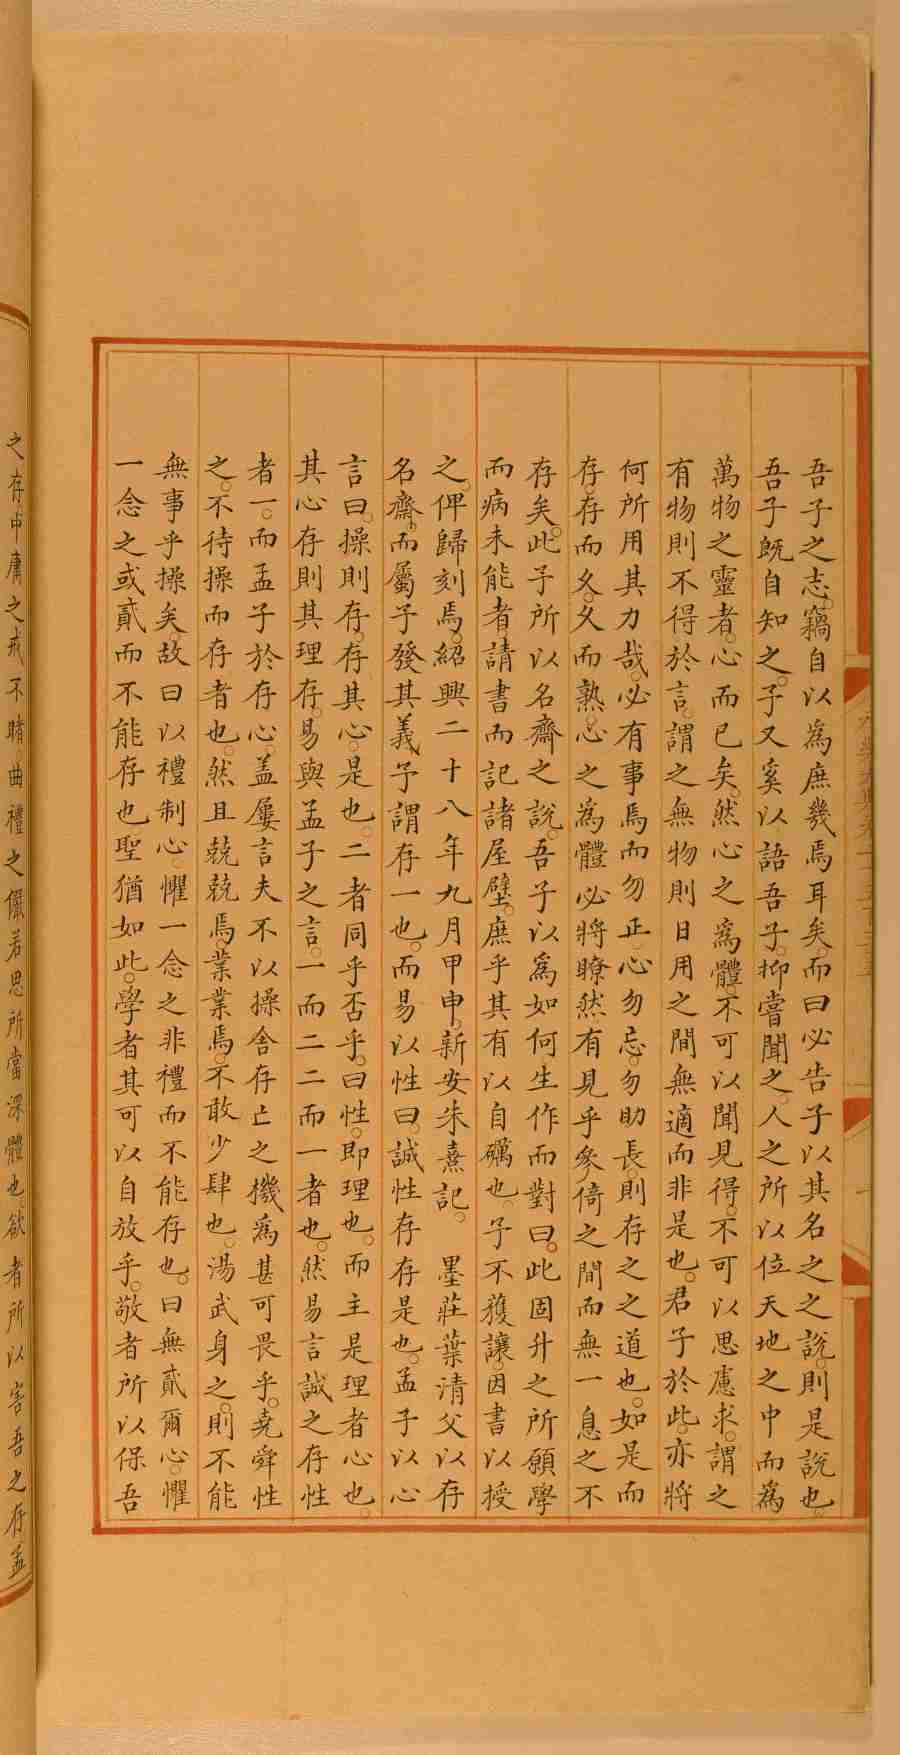 吾子之志。竊自以爲庶幾焉耳矣。而曰必告子以其名之之說。則是說也。
吾子既自知之。予又奚以語吾子。抑嘗聞之。人之所以位天地之中而爲
萬物之靈者。心而已矣。然心之爲體。不可以聞見得。不可以思慮求。謂之
有物則不得於言。謂之無物則日用之間無適而非是也。君子於此。亦將
何所用其力哉。必有事焉而勿正。心勿忘。勿助長。則存之之道也。如是而
存。存而久。久而熟。心之爲體必將瞭然有見乎參倚之間而無一息之不
存矣。此予所以名齋之說。吾子以爲如何。生作而對曰。此固升之所願學
而病未能者。請書而記諸屋壁。庶乎其有以自礪也。予不獲讓。因書以授
之。俾歸刻焉。紹興二十八年九月甲申。新安朱熹記。　墨莊葉清父以存
名齋。而屬予發其義予謂存一也。而易以性曰。誠性存存是也。孟子以心
言曰。操則存。存其心。是也。二者同乎否乎。曰性。即理也。而主是理者心也。
其心存則其理存。易與孟子之言。一而二二而一者也。然易言誠之存性
者一。而孟子於存心。盖屢言夫不以操舍存亡之機爲甚可畏乎。堯舜性
之。不待操而存者也。然且兢兢焉。業業焉。不敢少肆也。湯武身之。則不能
無事乎操矣。故曰以禮制心。懼一念之非禮而不能存也。曰無貳爾心。懼
一念之或貳而不能存也。聖猶如此。學者其可以自放乎。敬者所以保吾
之存中庸之戒不睹。曲禮之儼若思所當深體也。欲者所以害吾之存孟